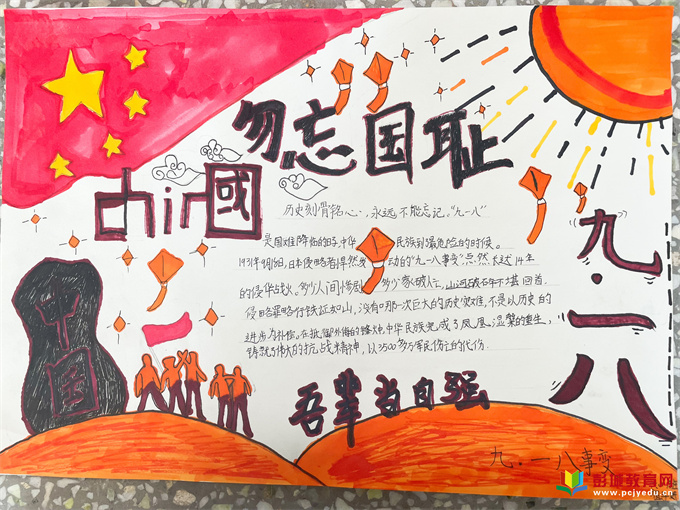 勿忘国耻
chin國
历史刻骨铭心，永远不能忘记。“九一八”
是国难降临的日子，中华民族到最危险的时候。
1931年9月18日，日本侵略者悍然发动的“九一八事变”
长达14年
的侵华战火，多少人间惨剧，多少家破人亡，山河破碎不堪回首。
侵略罪
铁证如山，没有哪一次巨大的历史灾难，不是以历史的
进步为补偿。在抵御外侮的烽火中，中华民族完成了凤凰涅槃的重生，
铸就了伟大的抗战精神，以3500多万军民伤亡的代价。
九·一八
中国
吾辈当自强
九·一八事变
彭城教育网
www.pcjyedu.cn